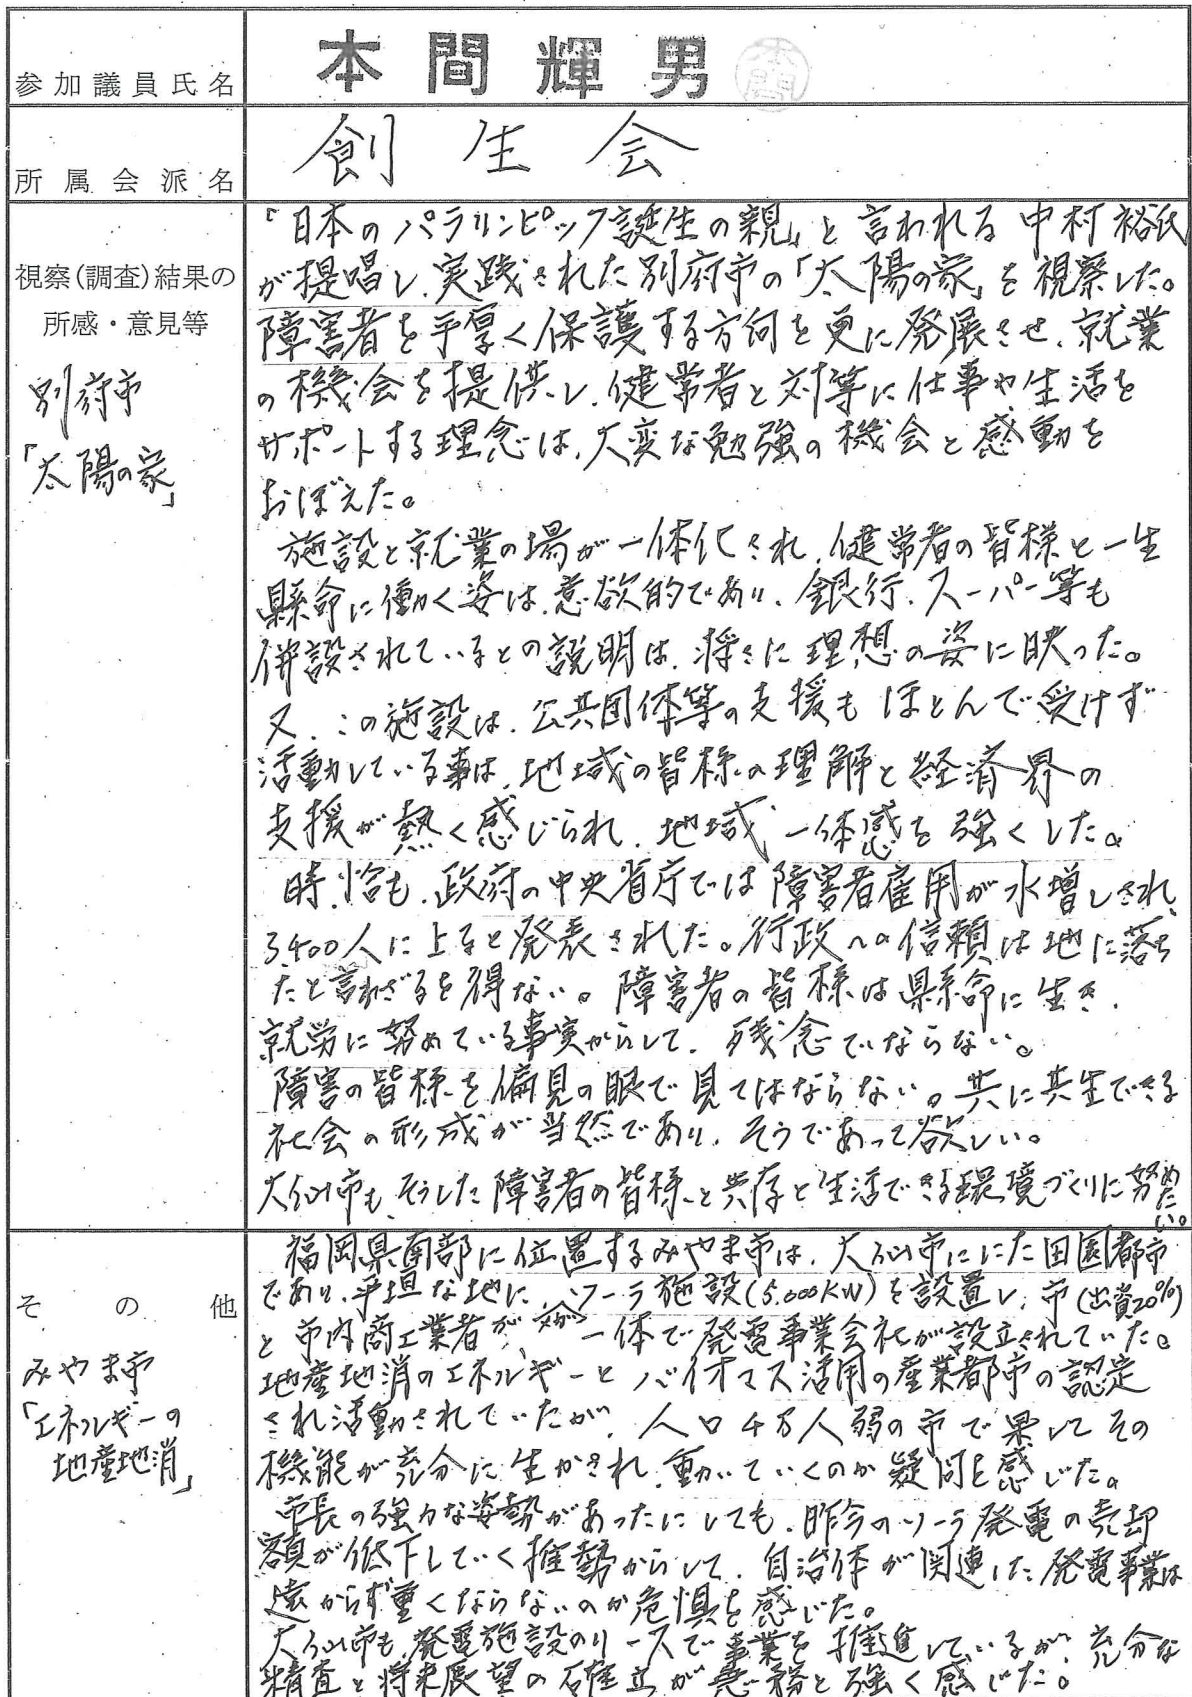 参加議員氏名
本間輝男
本間
所属会派名
創生会
視察(調査)結果の
所感・意見等
別府市
「太陽の家」
「日本のパラリンピック誕生の親」と言われる中村裕氏
が提唱し、実践された別府市の「太陽の家」を視察した。
障害者を手厚く保護する方向を更に発展させ、就業
の機会を提供し、健常者と対等に仕事や生活を
サポートする理念は、大変な勉強の機会と感動を
おぼえた。
施設と就業の場が一体化され、健常者の皆様と一生
懸命に働く姿は、意欲的であり、銀行、スーパー等も
併設されているとの説明は、将さに理想の姿に映った。
又、この施設は、公共団体等の支援もほとんで受けず
活動している事は、地域の皆様の理解と経済界の
支援が熱く感じられ、地域一体感を強くした。
時、恰も、政府の中央省庁では障害者雇用が水増しされ、
3400人に上ると発表された。行政への信頼は地に落ち
たと言わざるを得ない。障害者の皆様は懸命に生き、
就労に努めている事実からして、残念でならない。
障害の皆様を偏見の眼で見てはならない。共に共生できる
社会の形成が当然であり、そうであって欲しい。
大仙市も、そうした障害者の皆様と共存と生活できる環境づくりに努めたい。
その他
みやま市
「エネルギーの
地産地消」
福岡県南部に位置するみやま市は、大仙市ににた田園都市
であり、平坦な地に、ソーラ施設(5.000KW)を設置し、市(出資20%)
と市内商工業者が 一体で発電事業会社が設立されていた。
地産地消のエネルギーとバイオマス活用の産業都市の認定
され活動されていたが、人口4万人弱の市で果してその
機能が充分に生かされ、動いていくのか疑問を感じた。
市長の強力な姿勢があったにしても、昨今のソーラ発電の売却
額が低下していく推勢からして、自治体が関連した発電事業は
遠からず重くならないのか危惧を感じた。
大仙市も、発電施設のリースで事業を推進しているが、充分な
精査と将来展望の確立が急務と強く感じた。